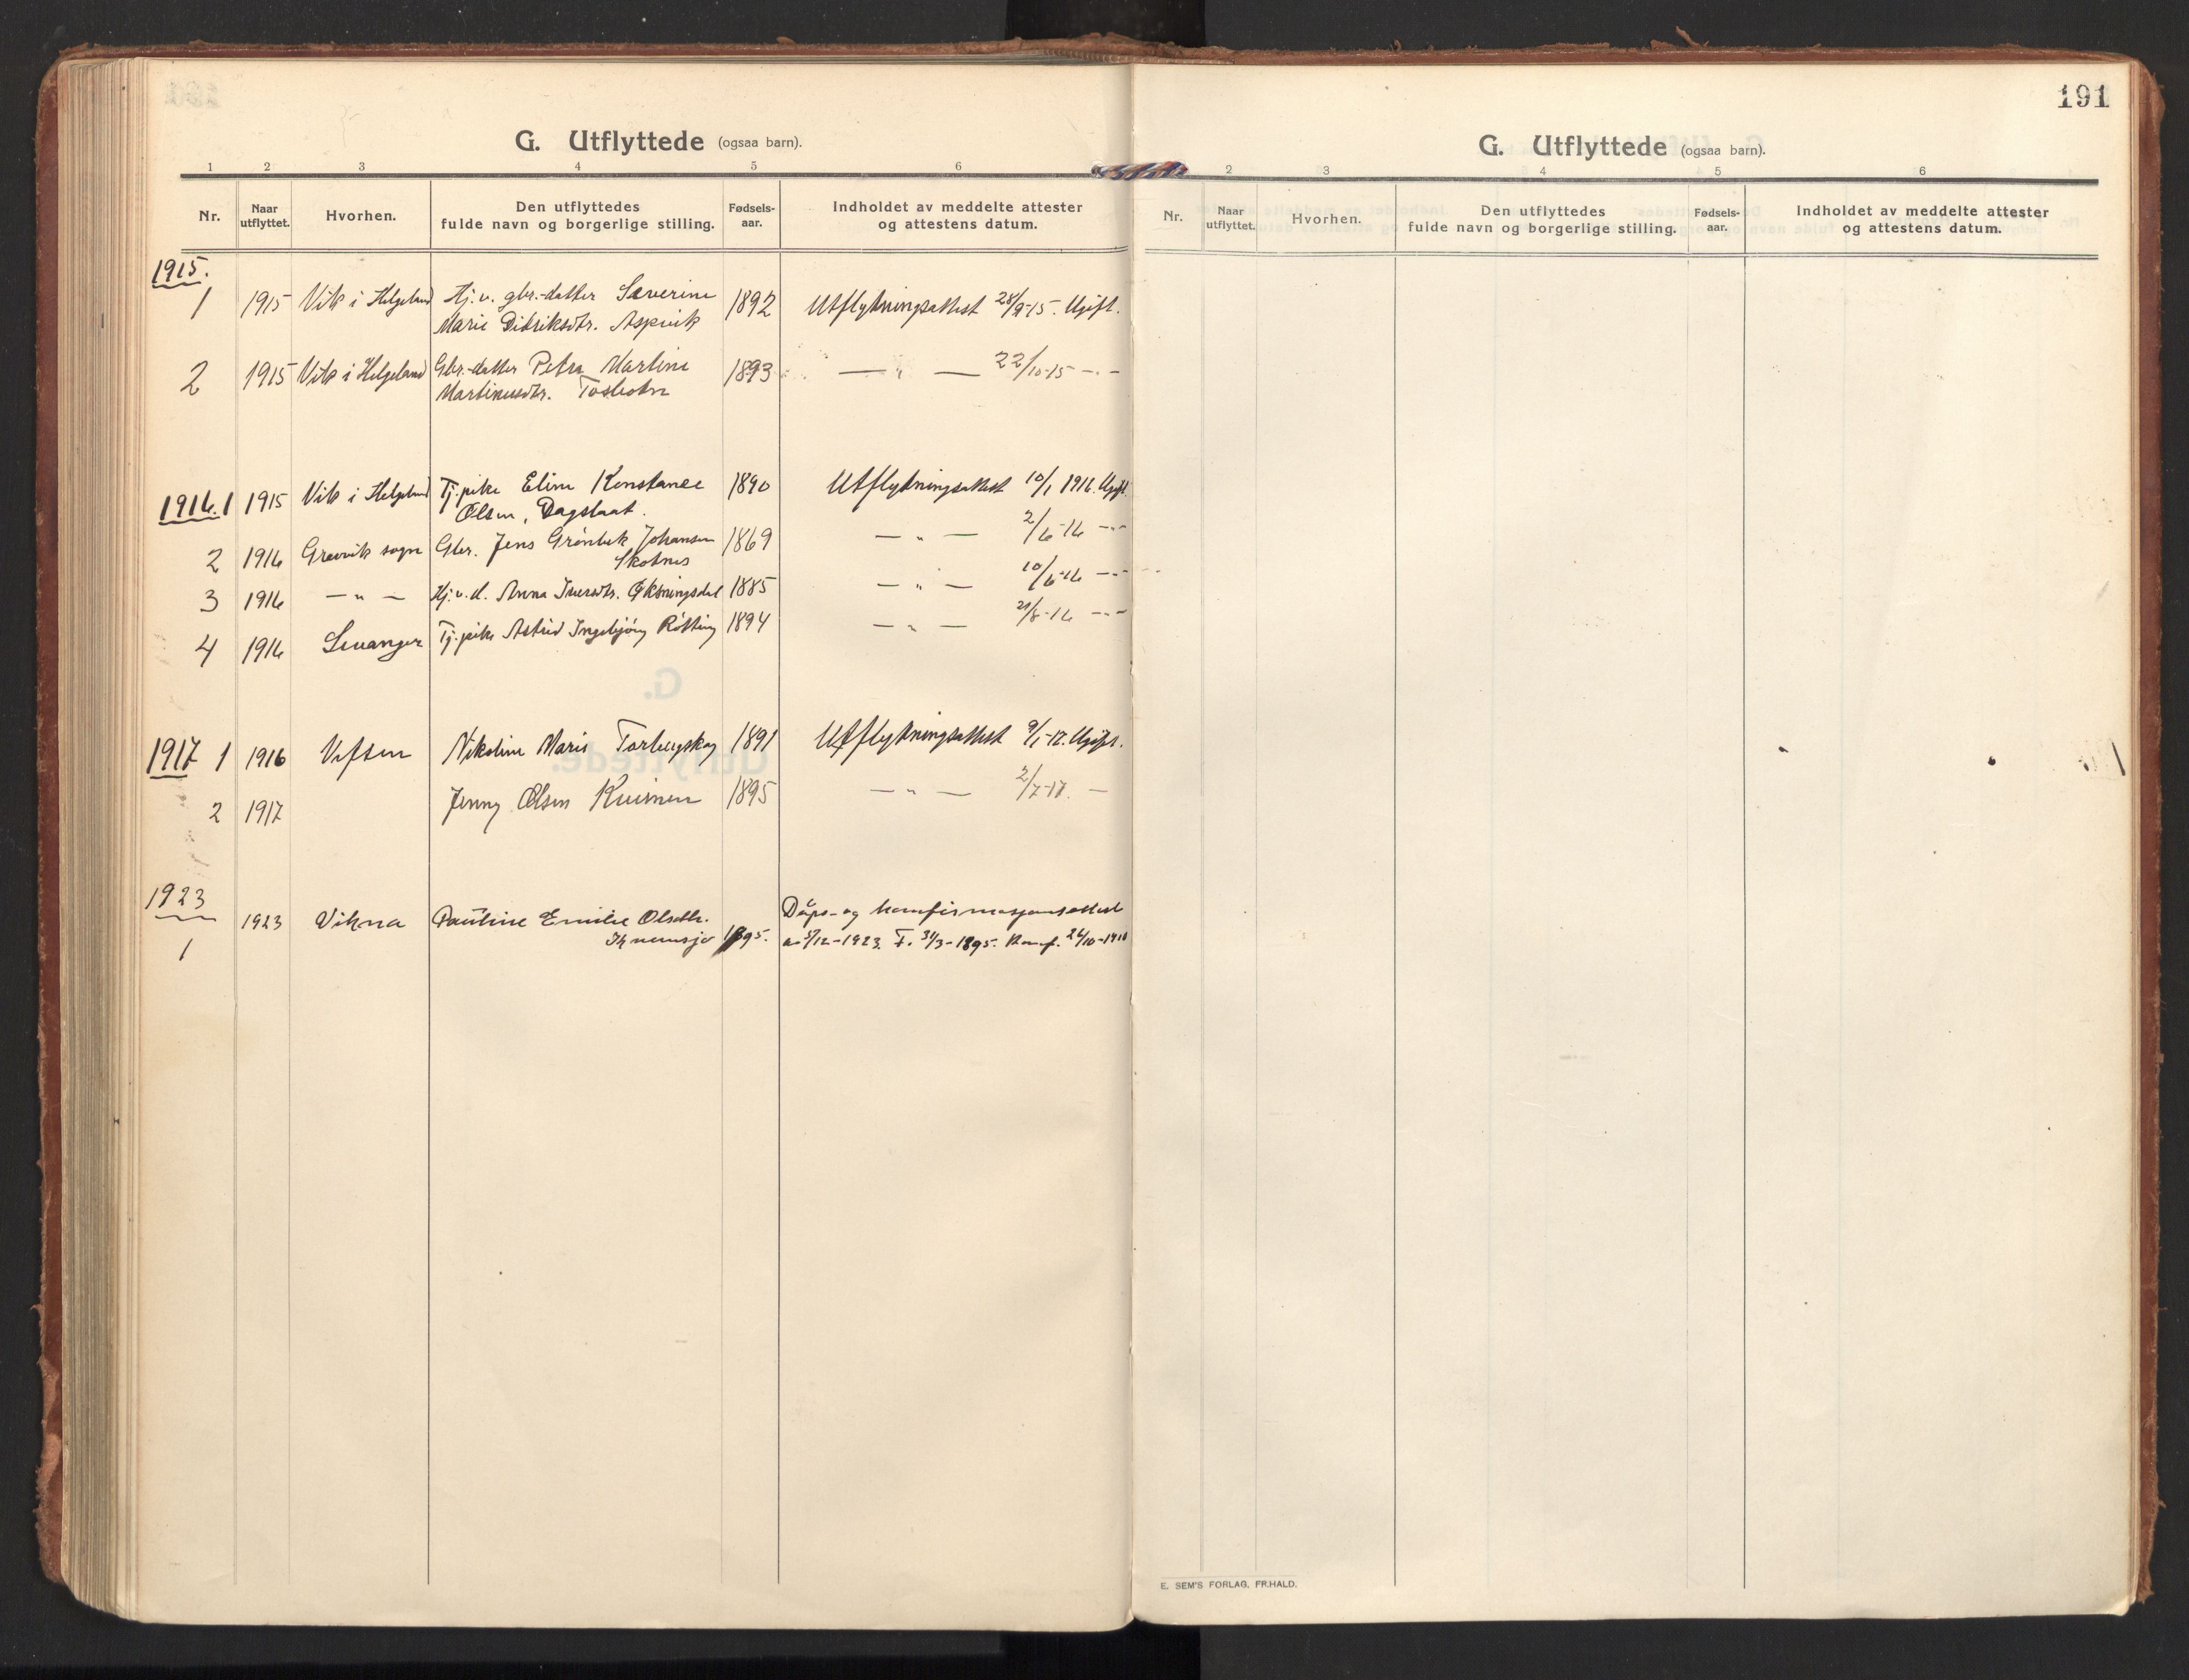 G. Utflyttede (ogsaa barn).
1 2 3 4 5 6
Nr. Naar utflyttet. Hvorhen. Den utflyttedes fulde navn og borgerlige stilling. Fødsels-aar. Indholdet av meddelte attester og attestens datum.
1915.
1 1915 Vik i Helgeland Hj.v. gbr.-datter Severine 1892 Utflytningsattest 28/9-15. Ugift.
Marie Didriksdtr. Aspvik
2 1915 Vik i Helgeland Gbr.-datter Petra Martine 1893 — " — 22/10-15 -"-
Martinusdtr. Tosbotn
1916. 1 1915 Vik i Helgeland Tj.pike Eline Konstanse 1890 Utflytningsattest 10/1 1916. Ugift.
Olsen, Dagslaat.
2 1916 Gravvik sogn Gbr. Jens Grønbek Johansen 1869 — " — 2/6-16 -"-
Skotnes
3 1916 — " — Hj.v.d. Anna Iversdtr. Øksningsdal 1885 — " — 10/6-16 -"-
4 1916 Levanger Tj.pike Astrid Ingebjørg Røtting 1894 — " — 21/8-16 -"-
1917 1 1916 Vefsen Nikoline Marie Torbergskog 1891 Utflytningsattest 9/1-17. Ugift.
2 1917 Jenny Olsen 1895 — " — 2/7-17. —
1923
1923 Vikna Pauline Emilie Olsdtr. Dåps- og konfirmasjonsattest
1 1895. av 5/12-1923. F. 31/3-1895. Konf. 24/10-1910
191
G. Utflyttede (ogsaa barn).
2 3 4 5 6
Nr. Naar utflyttet. Hvorhen. Den utflyttedes fulde navn og borgerlige stilling. Fødsels-aar. Indholdet av meddelte attester og attestens datum.
E. SEM'S FORLAG, FR.HALD.